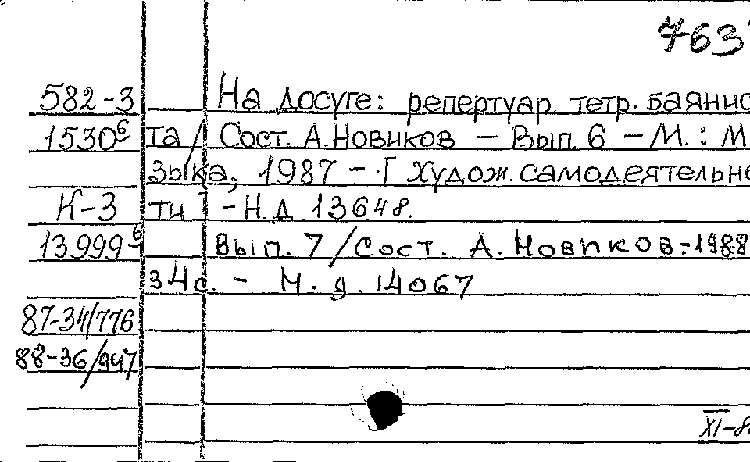 763
582-3 На досуге: репертуар. тетр. баянис
1530б та / Сост. А. Новиков – Вып. 6 – М.: М
зыка, 1987 – [ Худож. самодеятельно
К-3 ти ] – Н.д. 13648.
13999б Вып. 7 / Сост. А. Новиков.-1988
34с. – Н. д. 14067
87-34/776
88-36/947
XI-8